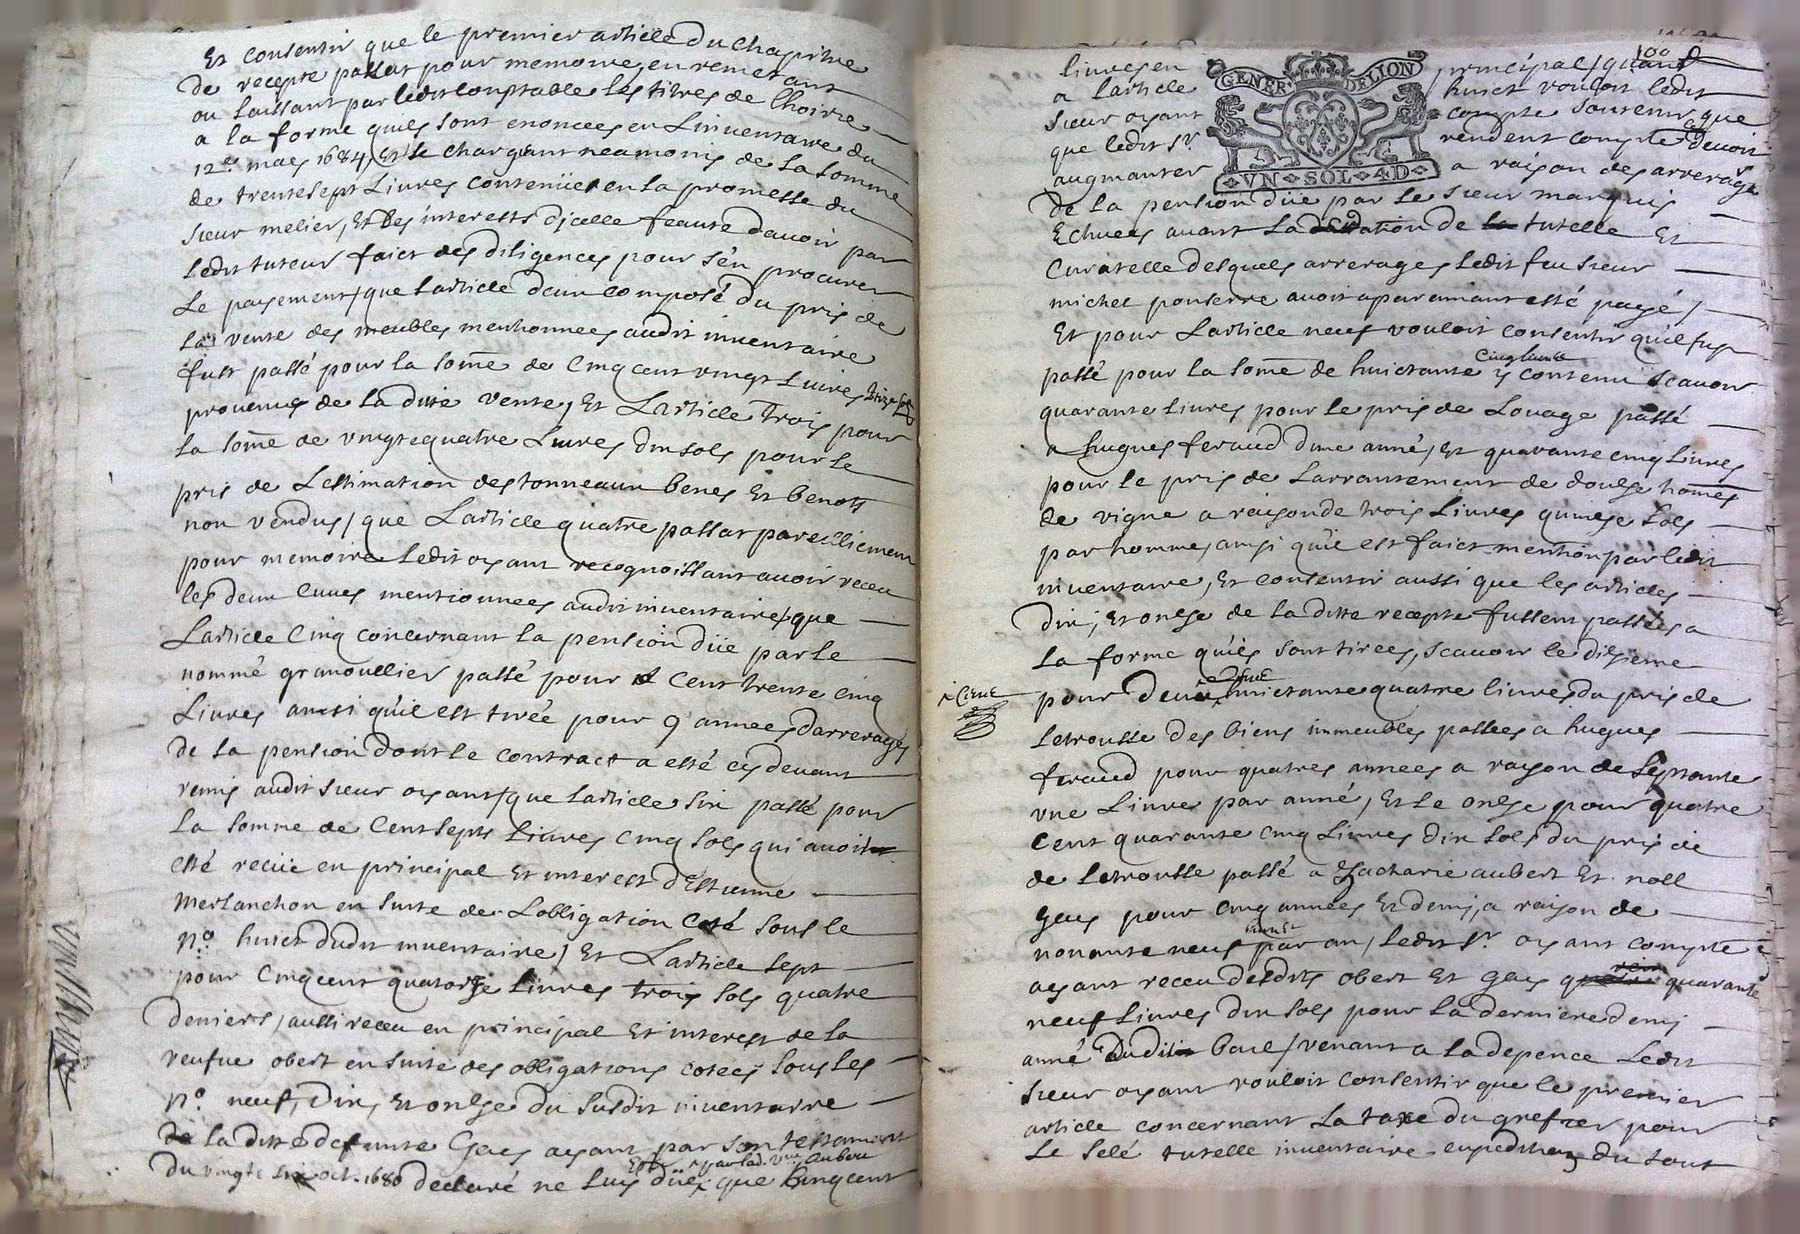 Et consentir que le premier article du chapitre
de recepte passat pour memoire en remetant
ou laissant par ledit comptable les titres de lhoirie
a la forme quils sont enoncees en Linventaire du
12e. mars 1684 Et se chargeant neamonis de la somme
de trente sept Livres contenüe en la promesse du
sieur melier, Et des interests dicelle feaute davoir par
Ledit tuteur faict des diligences pour s'en procurer
Le payement / que Larticle deux composé du pris de
La vente des meubles mentionnees audit inventaire
fust passé pour la some de Cinq cent vingt Livres treize sols
provenus de la ditte vente, Et Larticle Trois pour
La some de vingt quatre Livres dix sols pour le
pris de Lestimation des tonneaux benes Et benots
non vendus / que Larticle quatre passat pareilliement
pour memoire Ledit oyant recognoissant avoir receu
les deux cuves mentionnees audit inventaire / que
Larticle Cinq concernant la pension düe par le
nommé granoullier passé pour Cent trente cinq
Livres ainsi quil est tirée pour 9 annees darrerages
de la pension dont le contract a esté cy devant
remis audit sieur oyant / que larticle six passé pour
La somme de Cent sept Livres cinq sols qui avoit
esté recüe en principal Et interest dEstienne
Merlanchon en suite de Lobligation cotté sous le
No. huict dudit inventaire / Et Larticle sept
pour Cinq cent quatorze Livres trois sols quatre
deniers / aussi receu en principal Et interest de la
veufue obert en suite des obligations cotées sous les
No. neuf, Dix, Et onse du susdit inventaire
la ditte defunte Gays ayant par son testament
du vingt six oct. 1680 declaré ne luy düe que Cinq cent
par lad. vve Aubert
livres en principal / quand
100
GENER DELION
VN SOL 4D
a larticle huict vouloit ledit
sieur oyant compte soutenir que
que ledit Sr. rendent compte devoit
augmanter a raison des arrerages
De la pension düe par le sieur marquis
Echuees avant La dation de tutelle Et
Curatelle desquels arrerages Ledit feu sieur
michel ponserre avoit aparamant esté payé /
Et pour Larticle neuf vouloit consentir quil fust
cinq livres
passé pour la some de huictante y contenu scavoir
quarante livres pour le pris de Louage passé
a hugues feraud dune anné, Et quarante cinq Livres
pour le pris de Larrantement de doulse homes
de vigne a raison de trois Livres quinse sols
par homme, ainsi quil est faict mention par ledit
inventaire, Et consentir aussi que les articles
Dix, Et onse de la ditte recepte fussent passees a
La forme quils sont tirees, scavoir le dixieme
x Cent
pour deux huictante quatre livres du pris de
Letrousse des biens immeubles passees a hugues
feraud pour quatres annees a rayson de septante
une Livre par anné, Et Le onse pour quatre
Cent quarante cinq Livres dix sols du pris de
de Letrousse passé a Zacharie aubert Et noll
Gays pour cinq années Et demi, a raison de
livres
nonante neuf par an, Ledit Sr. oyant compte
ayant receu desdits obert Et Gays quarante
neuf Livres dix sols pour la derniere demi
anné Dudit bail / venant a la depence Ledit
sieur oyant vouloit consentir que le premier
article concernant La taxe du grefier pour
Le selé tutelle inventaire expedition du tout